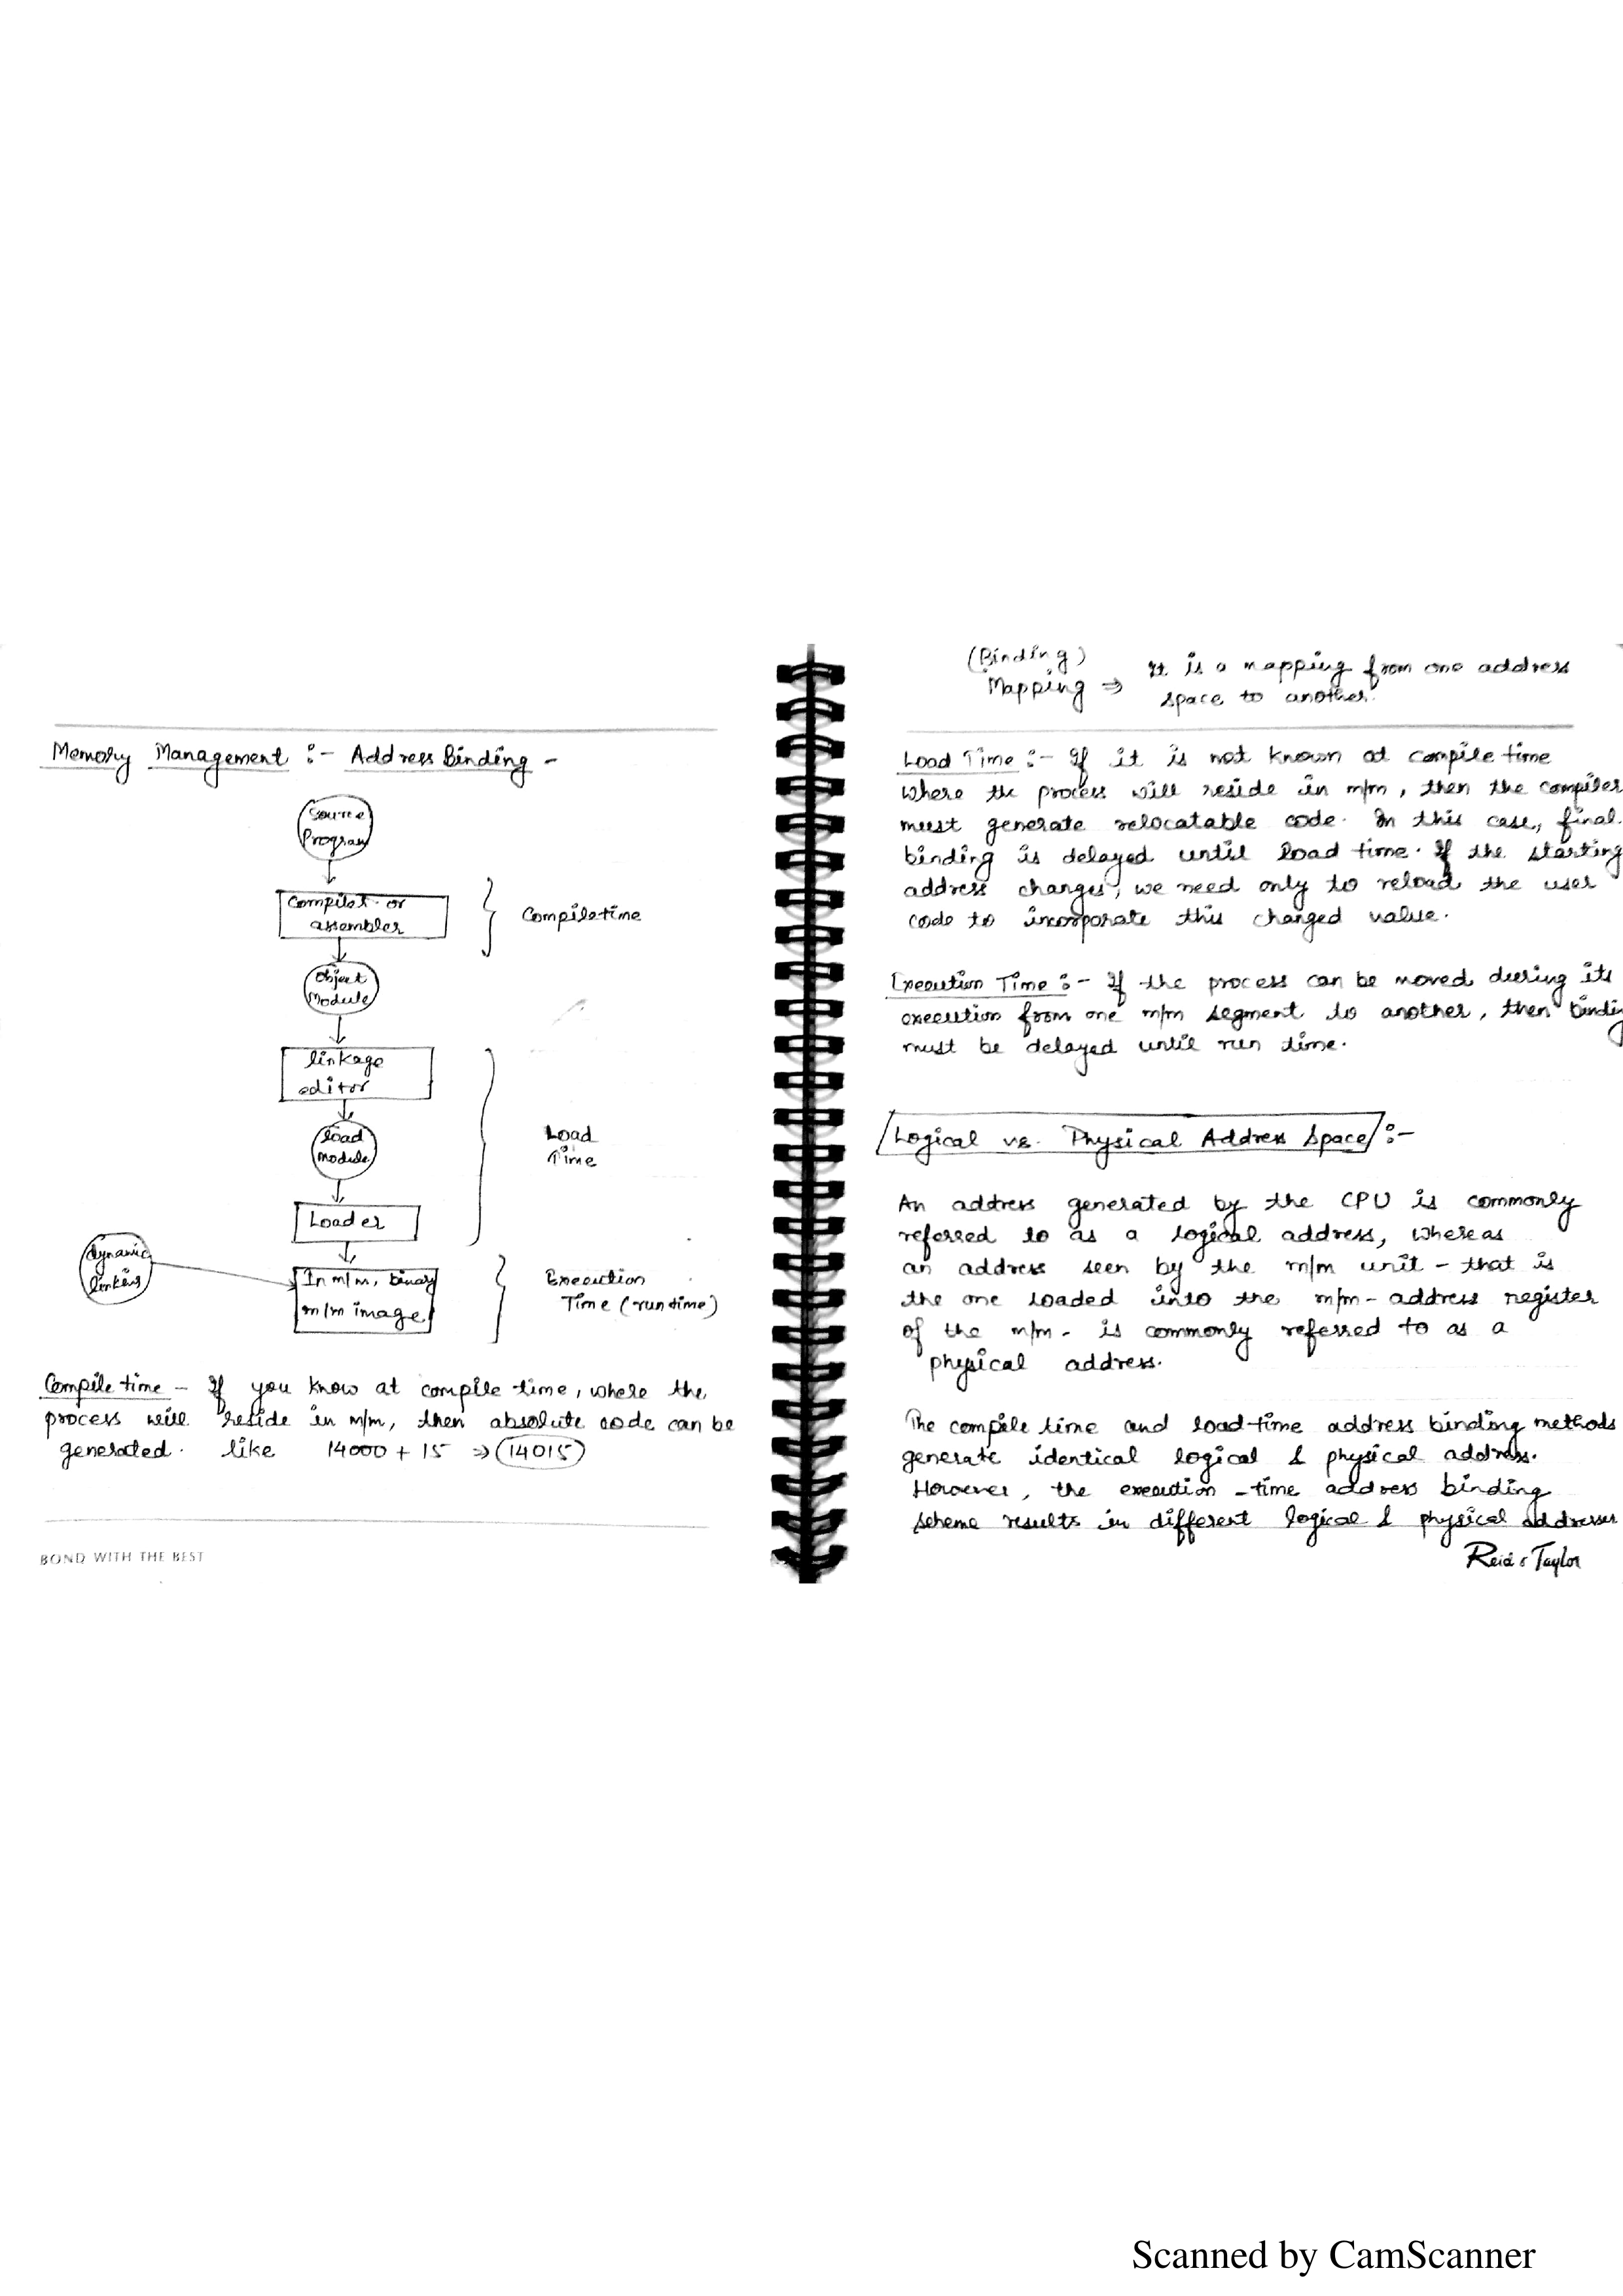 Memory Management :- Address Binding -
Source
Program
Compiler or
assembler
Compiletime
Object
Module
linkage
editor
load
module
Load
Time
Loader
dynamic
linking
In m/m, binary
m/m image
Execution
Time (runtime)
Compile time - If you know at compile time, where the
process will reside in m/m, then absolute code can be
generated. like 14000 + 15 ⇒ 14015
BOND WITH THE BEST
(Binding)
Mapping ⇒ It is a mapping from one address
space to another.
Load Time :- If it is not known at compile time
where the process will reside in m/m, then the compiler
must generate relocatable code. In this case, final
binding is delayed until load time. If the starting
address changes, we need only to reload the user
code to incorporate this changed value.
Execution Time :- If the process can be moved during its
execution from one m/m segment to another, then bindin
must be delayed until run time.
Logical vs. Physical Address Space :-
An address generated by the CPU is commonly
referred to as a logical address, whereas
an address seen by the m/m unit - that is
the one loaded into the m/m - address register
of the m/m - is commonly referred to as a
physical address.
The compile time and load-time address binding methods
generate identical logical & physical address.
However, the execution -time address binding
scheme results in different logical & physical addresses
Reid & Taylor
Scanned by CamScanner